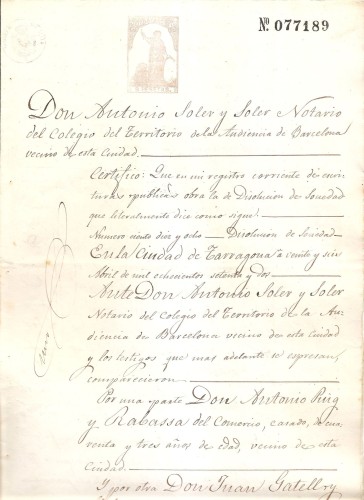 Nº 077189
Don Antonio Soler y Soler Notario
del Colegio del Territorio de la Audiencia de Barcelona
vecino de esta Ciudad.
Certifico: Que en mi registro corriente de escri-
turas publicas obra la de Disolucion de Sociedad
que literalmente dice como sigue:
Numero ciento diez y ocho Disolucion de Sociedad
En la Ciudad de Tarragona á veinte y seis
Abril de mil ochocientos setenta y dos
Ante Don Antonio Soler y Soler
Notario del Colegio del Territorio de la Au-
diencia de Barcelona vecino de esta Ciudad
y los testigos que mas adelante se espresan,
comparecieron.
Por una parte Don Antonio Puig
y Rabassa del Comercio, casado, de cua-
renta y tres años de edad, vecino de esta
Ciudad.
Y por otra Don Juan Gatell y